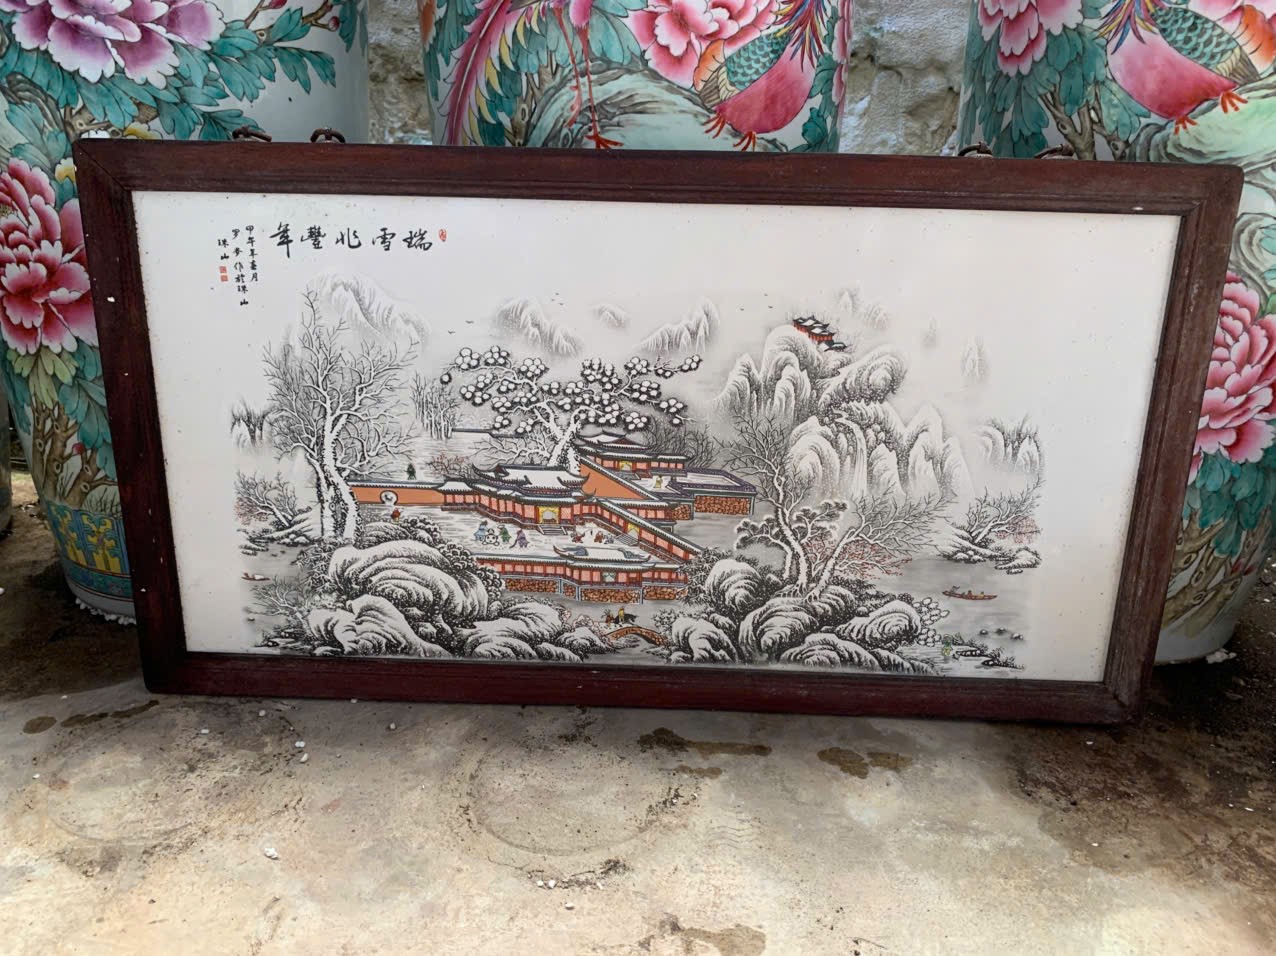 瑞雪兆豐年
甲午年春月
作於珠山
珠山